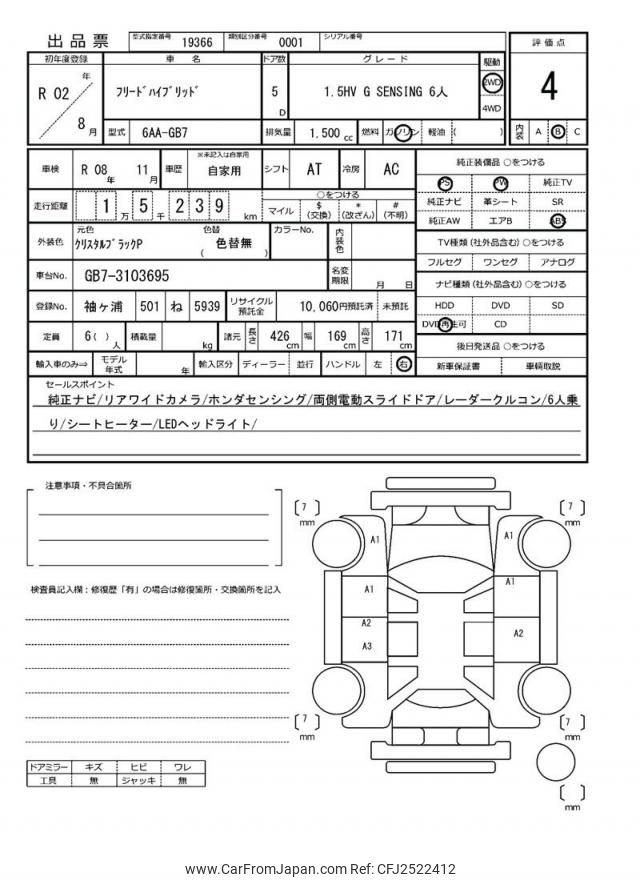 出品票
型式指定番号 19366 類別区分番号 0001 シリアル番号
評価点
4
初年度登録 車名 ドア数 グレード 駆動
R 02 年 8 月
フリードハイブリッド
5 D
1.5HV G SENSING 6人
2WD
4WD
型式 6AA-GB7 排気量 1,500 cc 燃料 ガソリン 軽油 ( )
内装 A B C
車検 R 08 年 11 月 車歴 ※未記入は自家用 自家用 シフト AT 冷房 AC
純正装備品 ○をつける
PS PW 純正TV
純正ナビ 革シート SR
純正AW エアB ABS
走行距離 1 万 5 千 2 3 9 km
○をつける
マイル $ (交換) * (改ざん) # (不明)
外装色 元色 クリスタルブラックP 色替 ( 色替無 ) カラーNo. 内装色
TV種類 (社外品含む) ○をつける
フルセグ ワンセグ アナログ
車台No. GB7-3103695 名変期限 月 日
ナビ種類 (社外品含む) ○をつける
HDD DVD SD
DVD再生可 CD
登録No. 袖ヶ浦 501 ね 5939 リサイクル預託金 10,060円預託済 未預託
定員 6( ) 人 積載量 kg 諸元 長さ 426 cm 幅 169 cm 高さ 171 cm
後日発送品 ○をつける
新車保証書 車輌取説
輸入車のみ⇒ モデル年式 年 輸入区分 ディーラー 並行 ハンドル 左 右
セールスポイント
純正ナビ/リアワイドカメラ/ホンダセンシング/両側電動スライドドア/レーダークルコン/6人乗
り/シートヒーター/LEDヘッドライト/
注意事項・不具合箇所
検査員記入欄：修復歴「有」の場合は修復箇所・交換箇所を記入
ドアミラー キズ ヒビ ワレ
工具 無 ジャッキ 無
[ 7 ] mm
[ 7 ] mm
A1
A1
A1
A1
A2
A3
A2
[ 7 ] mm
[ 7 ] mm
[ ] mm
www.CarFromJapan.com Ref: CFJ2522412